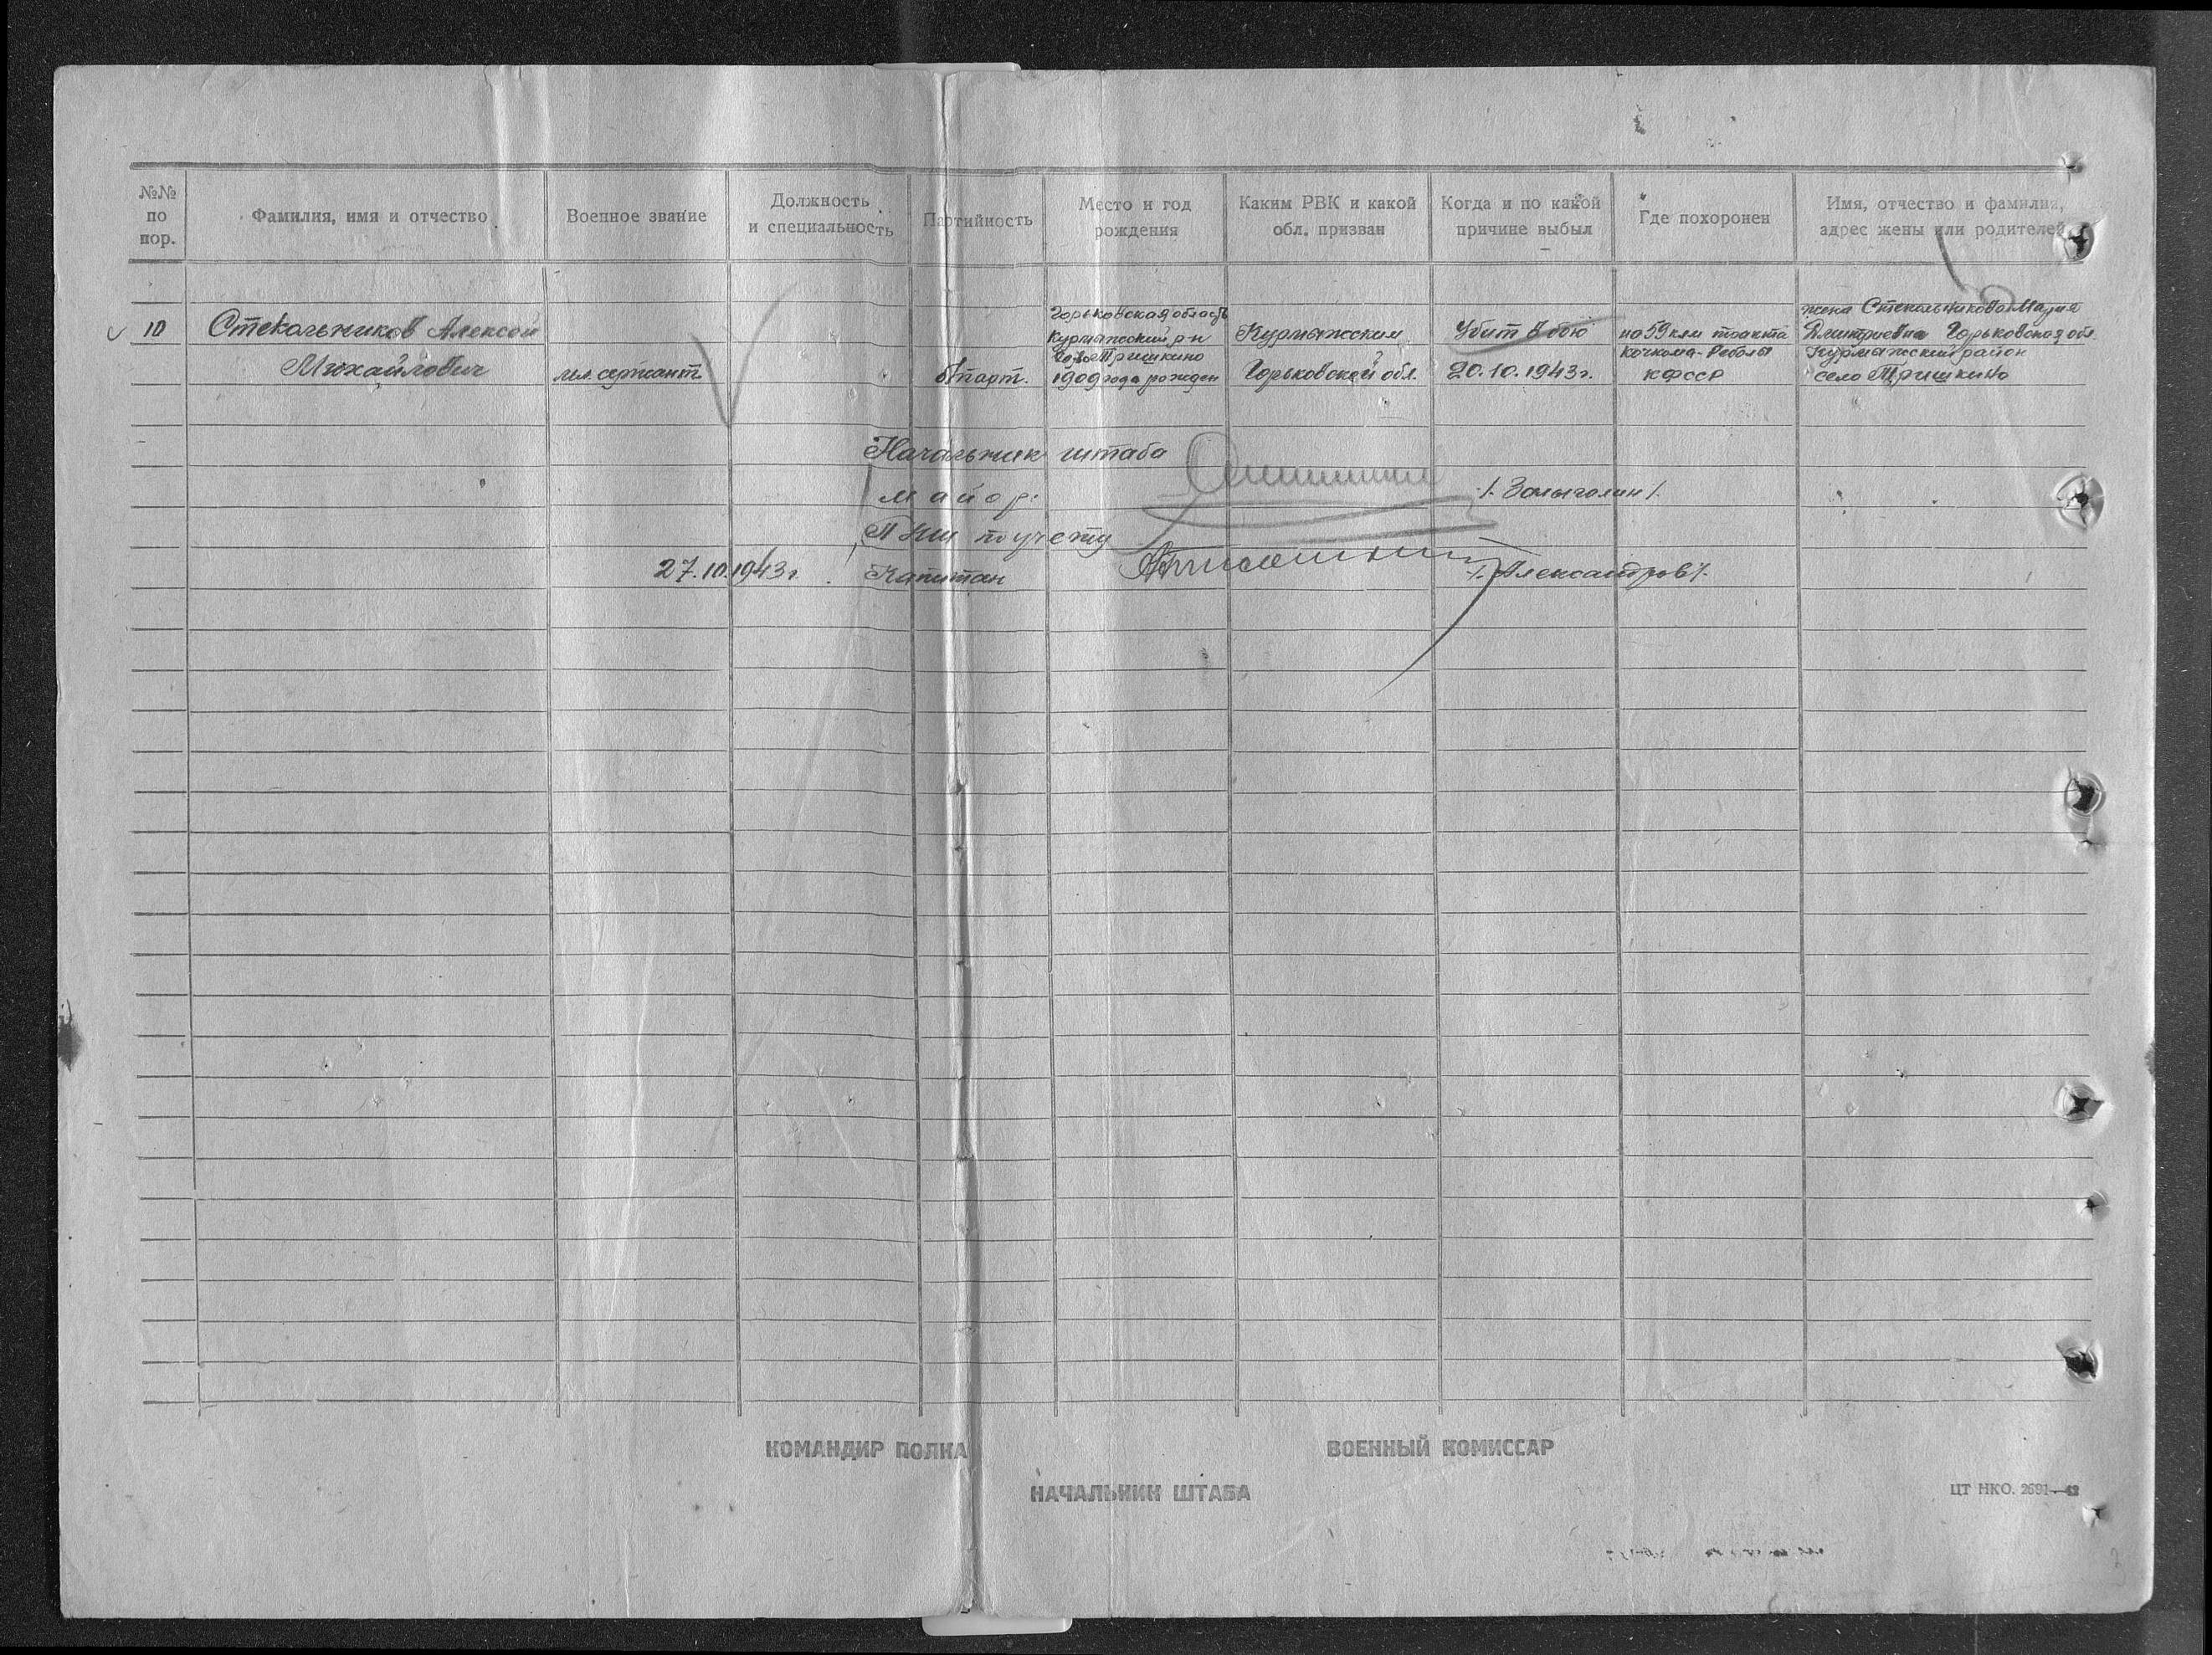 №№ по пор.
Фамилия, имя и отчество
Военное звание
Должность и специальность
Партийность
Место и год рождения
Каким РВК и какой обл. призван
Когда и по какой причине выбыл
Где похоронен
Имя, отчество и фамилия, адрес жены или родителей
10
Стекольников Алексей
Михайлович
мл. сержант
б/парт.
Горьковская область
Курмышский р-н
село Тришкино
1909 года рожден
Курмышским
Горьковской обл.
Убит в бою
20.10.1943г.
на 59 клм тракта
Кочкома-Реболы
КФССР
жена Стекольникова Мария
Дмитриевна Горьковская обл.
Курмышский район
село Тришкино
Начальник штаба
майор:
ПНШ по учету
27.10.1943г. Капитан
/. Александров/.
КОМАНДИР ПОЛКА
ВОЕННЫЙ КОМИССАР
НАЧАЛЬНИК ШТАБА
ЦТ НКО. 2691—42